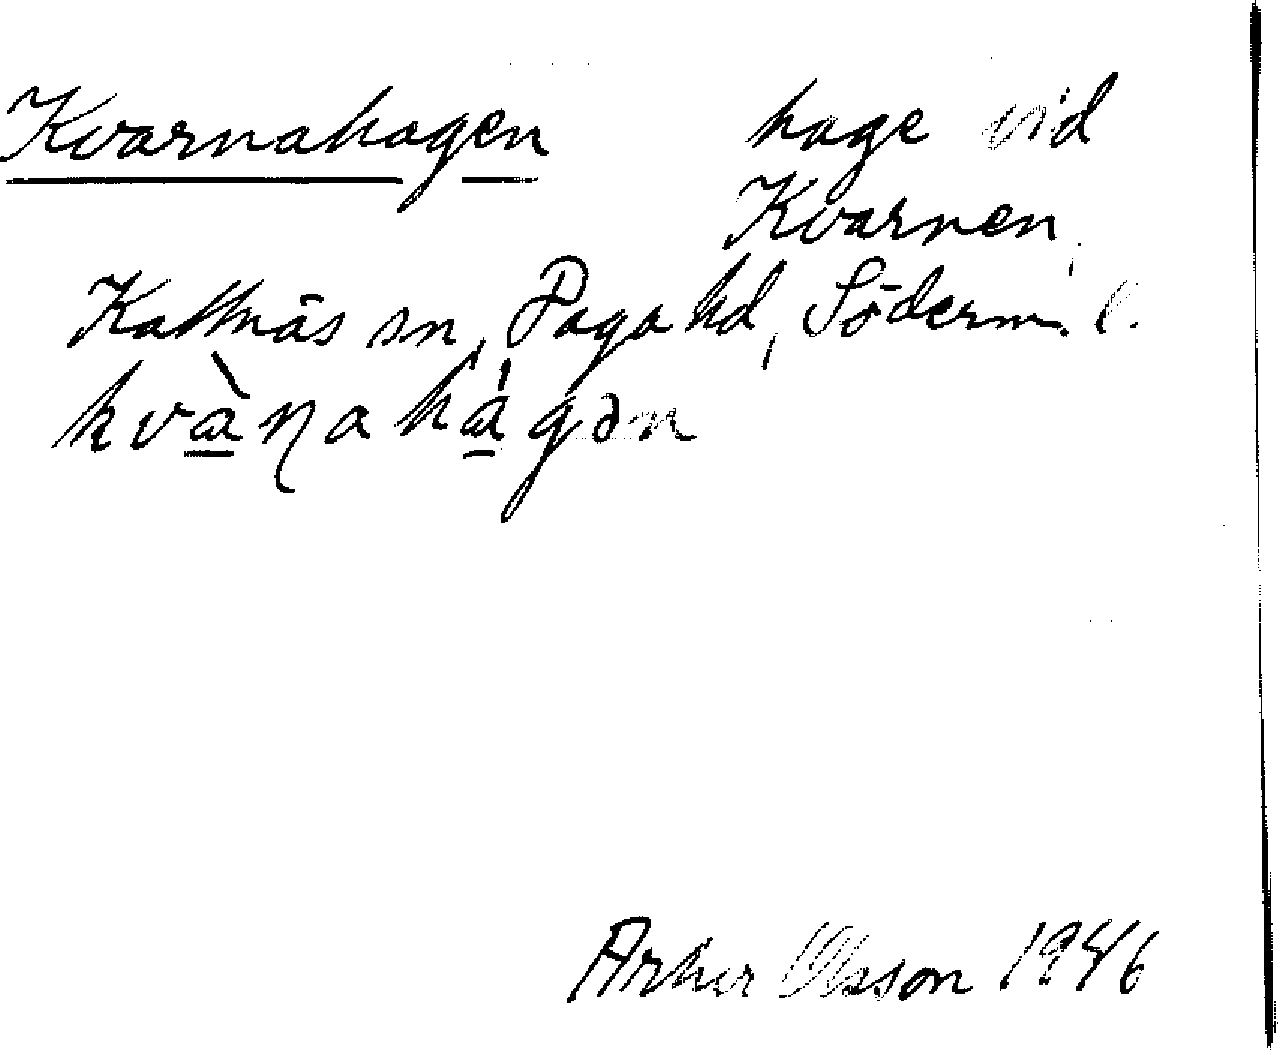 Kvarnahagen hage vid
Kvarnen,
Kattnäs sn, Daga hd, Söderm. l.
kvàɳahágən
Arthur Olsson 1946